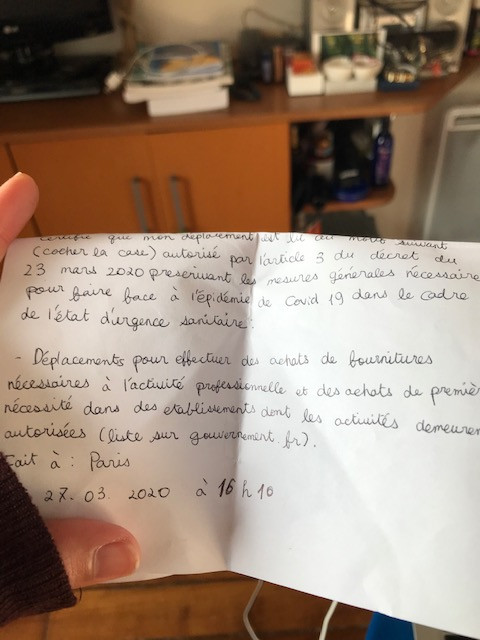 certifie que mon déplacement est lié au motif suivant
(cocher la case) autorisé par l'article 3 du décret du
23 mars 2020 prescrivant les mesures générales nécessaire
pour faire face à l'épidémie de Covid 19 dans le cadre
de l'état d'urgence sanitaire:
- Déplacements pour effectuer des achats de fournitures
nécessaires à l'activité professionnelle et des achats de premiè
nécessité dans des etablissements dont les activités demeuren
autorisées (liste sur gouvernement.fr).
Fait à : Paris
27.03.2020 à 16h10